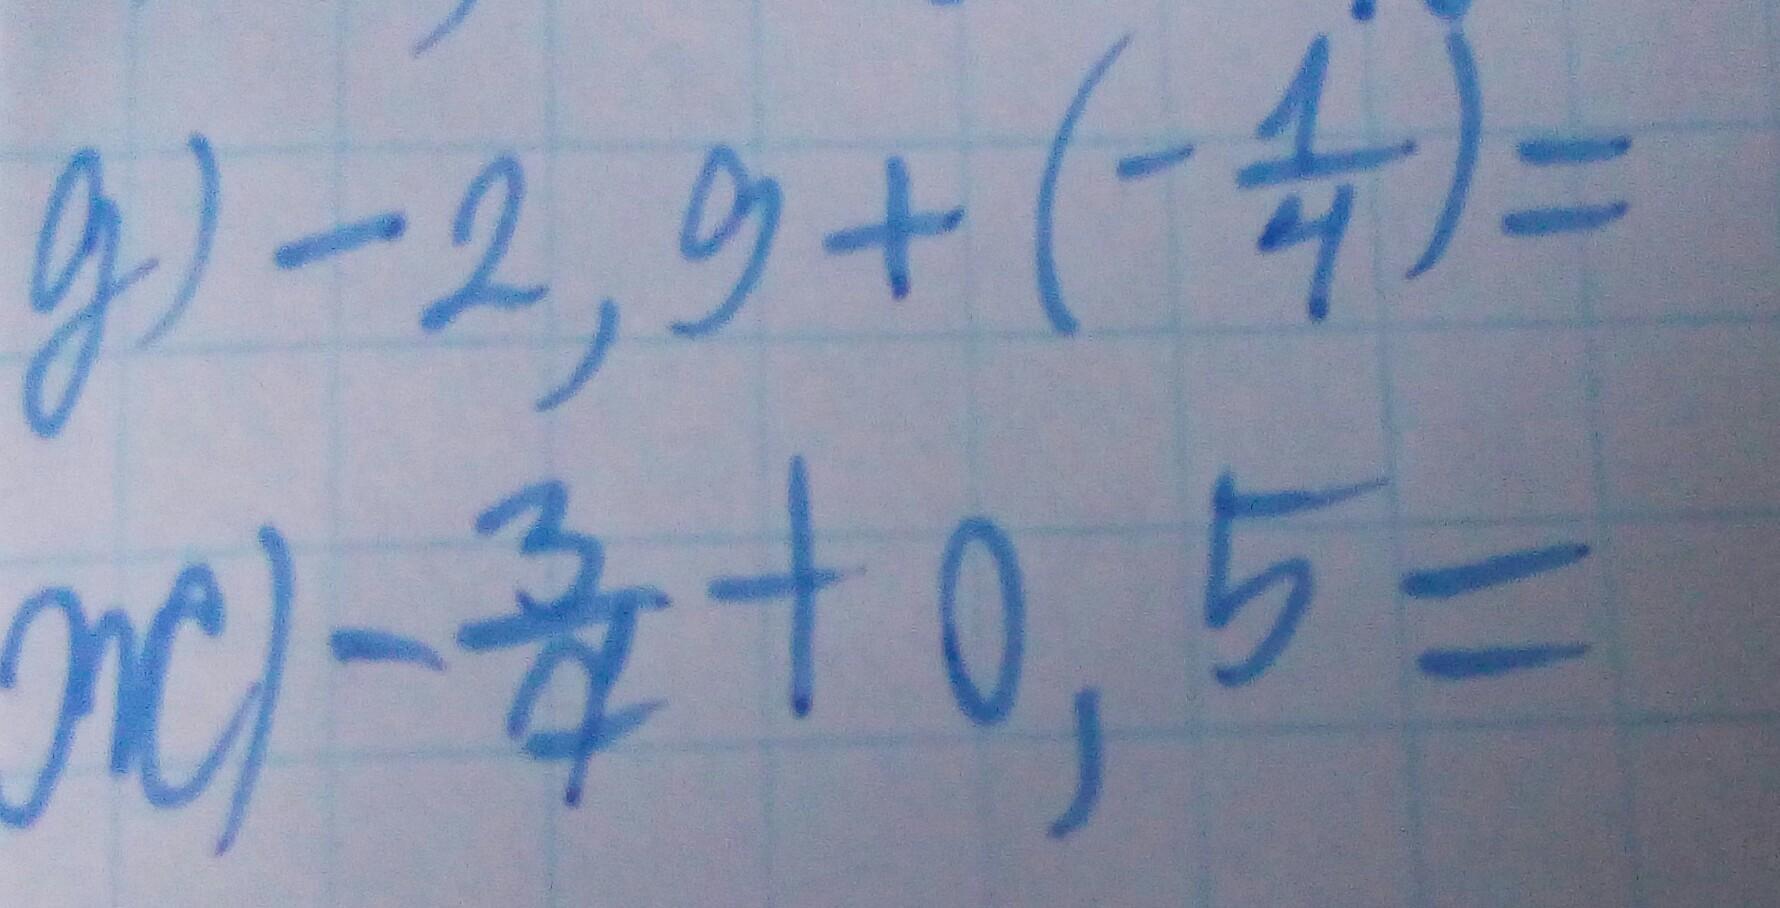 д) -2,9 + (-1/4) =
ж) -3/4 + 0,5 =